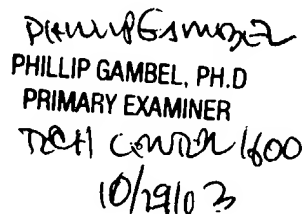 PHILLIP GAMBEL
PHILLIP GAMBEL, PH.D
PRIMARY EXAMINER
TECH CENTER 1600
10/29/03